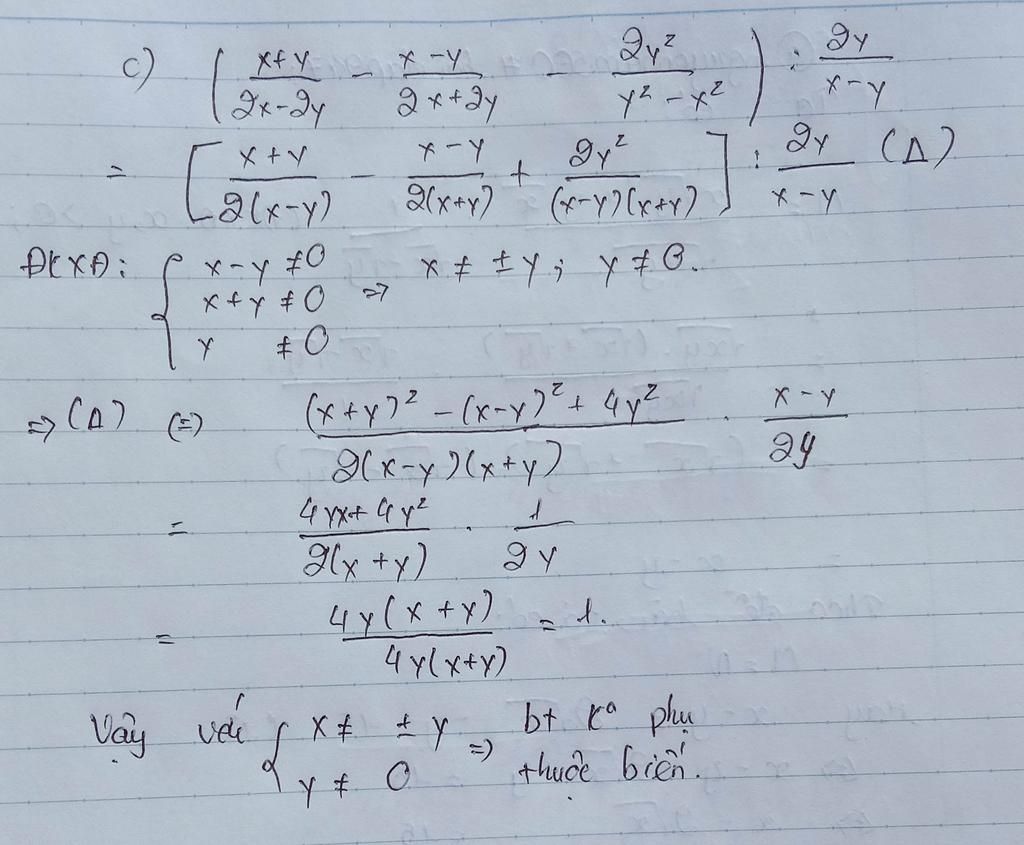 c) ( (x+y)/(2x-2y) - (x-y)/(2x+2y) - 2y²/(y²-x²) ) : 2y/(x-y)
= [ (x+y)/(2(x-y)) - (x-y)/(2(x+y)) + 2y²/((x-y)(x+y)) ] : 2y/(x-y) (Δ)
ĐKXĐ: { x-y ≠ 0 => x ≠ ±y; y ≠ 0.
x+y ≠ 0
y ≠ 0
=> (Δ) (=) ((x+y)² - (x-y)² + 4y²)/(2(x-y)(x+y)) . (x-y)/2y
= (4yx+4y²)/(2(x+y)) . 1/2y
= 4y(x+y)/4y(x+y) = 1.
Vậy với { x ≠ ±y => bt k° phụ
y ≠ 0 thuộc biến.